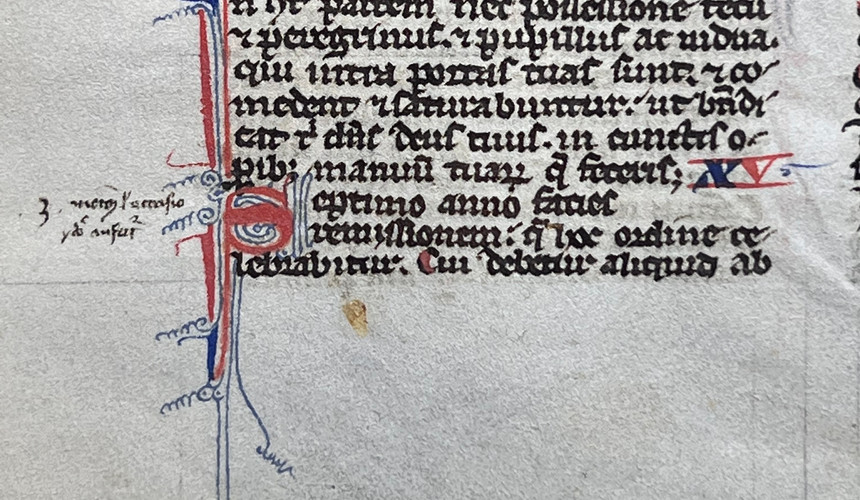 n hȝ partem nec possessione tecū
⁊ peregrinus. ⁊ pupillus ac uidua.
qui intra portas tuas sunt. ⁊ co-
medent ⁊ saturabuntur. ut bn̄di
cat tⁱ dn̄s deus tuus. in cunctis o-
pibȝ manuū tuaꝝ q̄ feceris; XV
Septimo anno facies
remissionem. q̄ hoc ordine ce-
lebrabitur. Cui debetur aliquid ab
3.